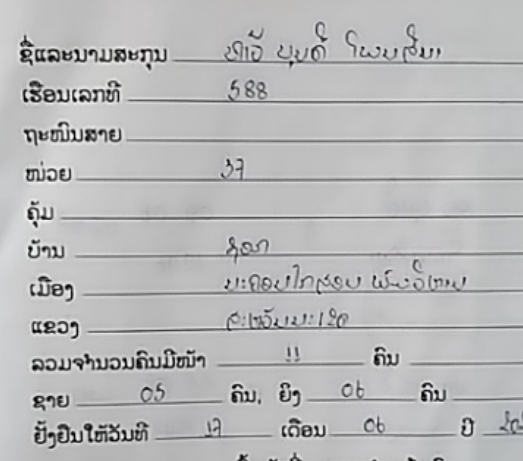 ຊື່ແລະນາມສະກຸນ ທ້າວ ບຸນດີ ໂພບສີນາ
ເຮືອນເລກທີ 588
ຖະໜົນສາຍ
ໜ່ວຍ 37
ຄຸ້ມ
ບ້ານ
ເມືອງ ນະຄອນໄກສອນ ພົມວິຫານ
ແຂວງ ສະຫວັນນະເຂດ
ລວມຈຳນວນຄົນມີໜ້າ 11 ຄົນ
ຊາຍ 05 ຄົນ, ຍິງ 06 ຄົນ
ຢັ້ງຢືນໃຫ້ວັນທີ 17 ເດືອນ 06 ປີ